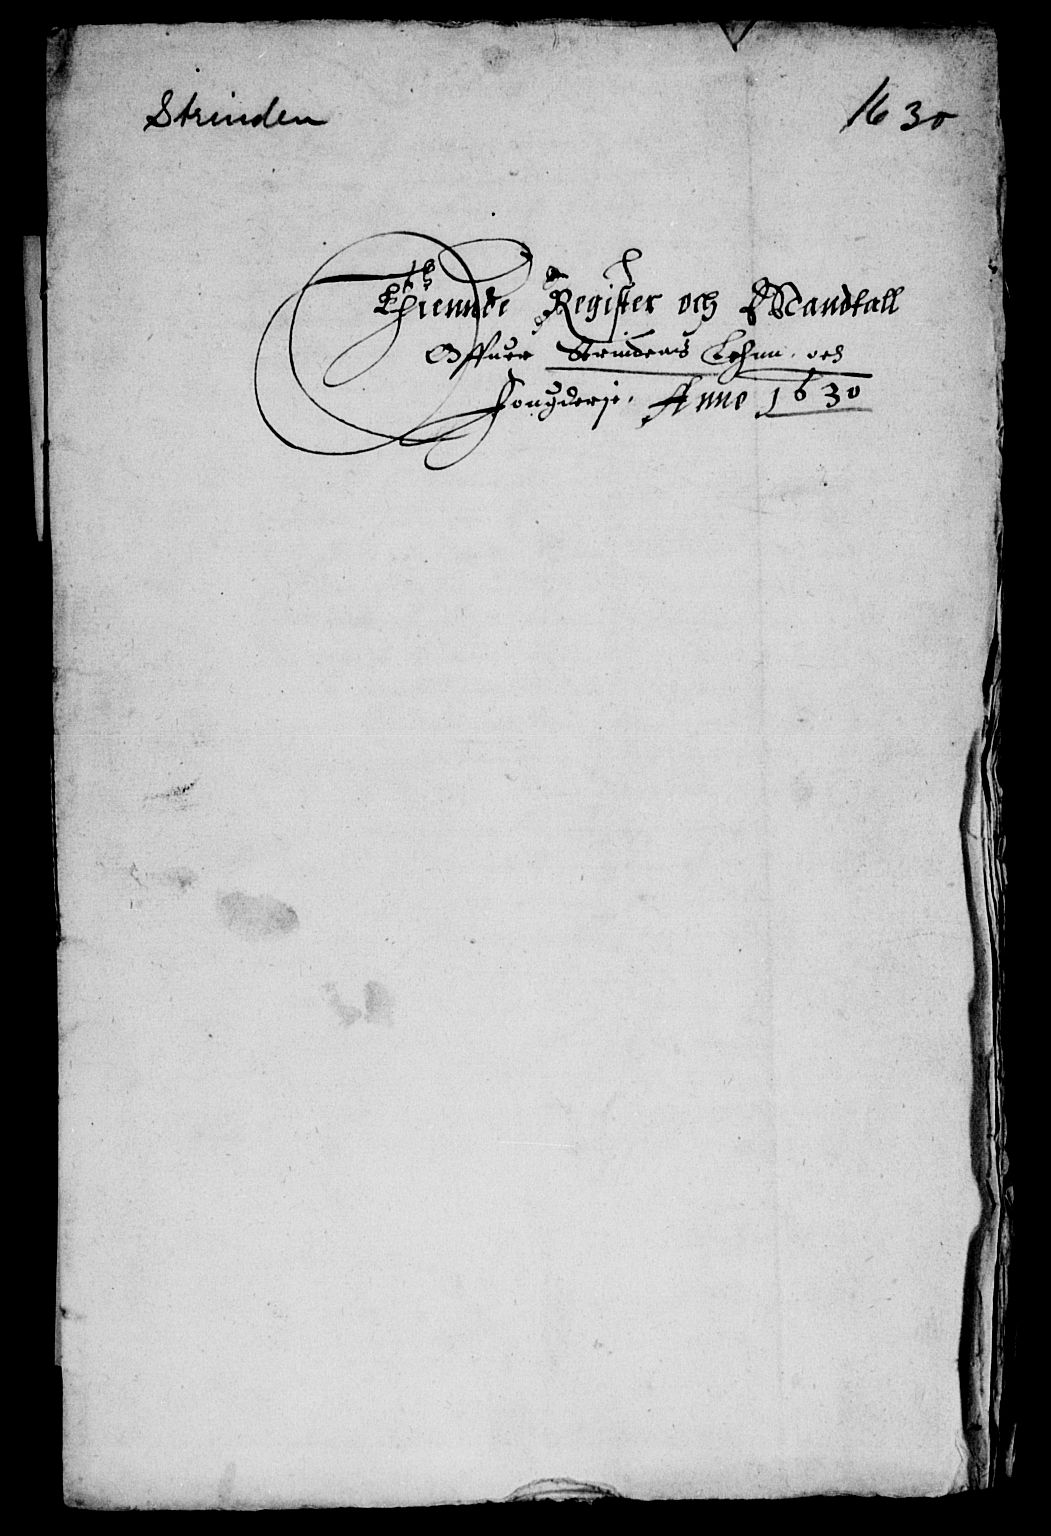 Strinden 1630
Thiennde Register och Mandtall
Offuer Strindens Lehnn och
Anno 1630